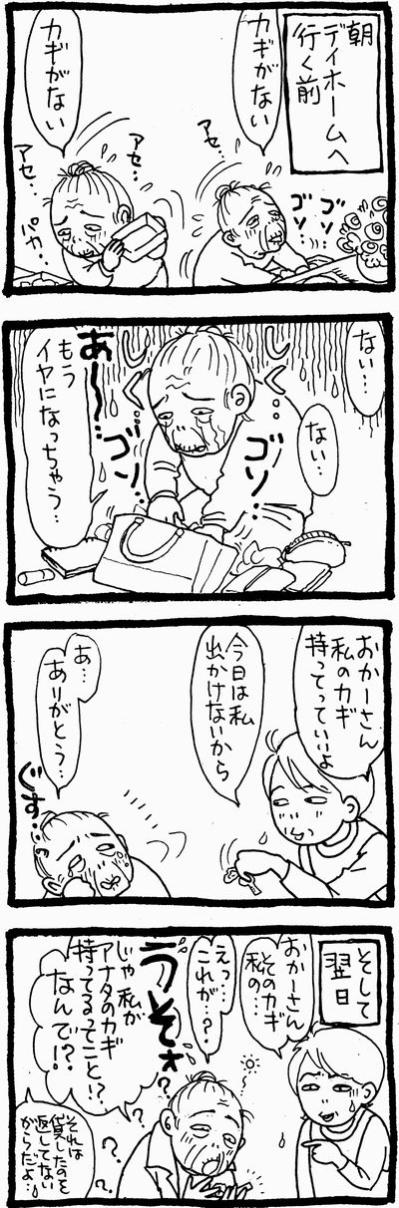 朝
デイホームへ
行く前
カギがない
ゴソ
ゴソ…
アセ…
カギがない
アセ…
アセ…
パカ…
ない…
ない…
じく…
じく…
ゴソ…
ゴソ…
あ〜…
もう
イヤになっちゃう…
おかーさん
私のカギ
持ってっていいよ
今日は私
出かけないから
あ…
ありがとう…
ぐす…
そして
翌日
おかーさん
そのカギ
私の…
えっ…
これが…?
うそォ?
じゃ私が
アナタのカギ
持ってるってこと!?
なんで!?
それは
貸したのを
返してない
からだよ…